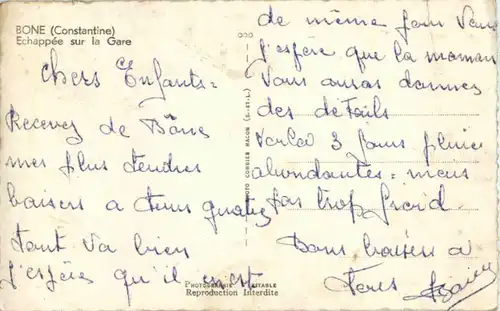 BONE (Constantine)
Echappée sur la Gare
Chers Enfants =
Recevez de Bône
mes plus tendres
baisers a tous quatre
tout va bien
j'espère qu'il en est
de même pour vous
j'espère que la maman
vous auras données
des détails
voila 3 jours pluie
abondantes = mais
pas trop froid.
Bons baisers a
tous
PHOTO COMBIER MACON (S.-ET-L.)
PHOTOGRAPHIE VÉRITABLE
Reproduction Interdite